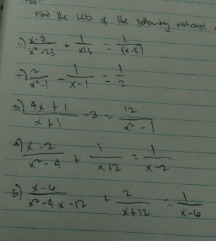 Find the LCD of the following rational
1) x-3/x²-25 + 1/x+5 = 1/(x-5)
2) 2/x²-1 - 1/x-1 = 1/2
3) 4x+1/x+1 - 3 = 12/x²-1
4) x-2/x²-4 + 1/x+2 = 1/x-2
5) x-6/x²-4x-12 + 2/x+12 = 1/x-6